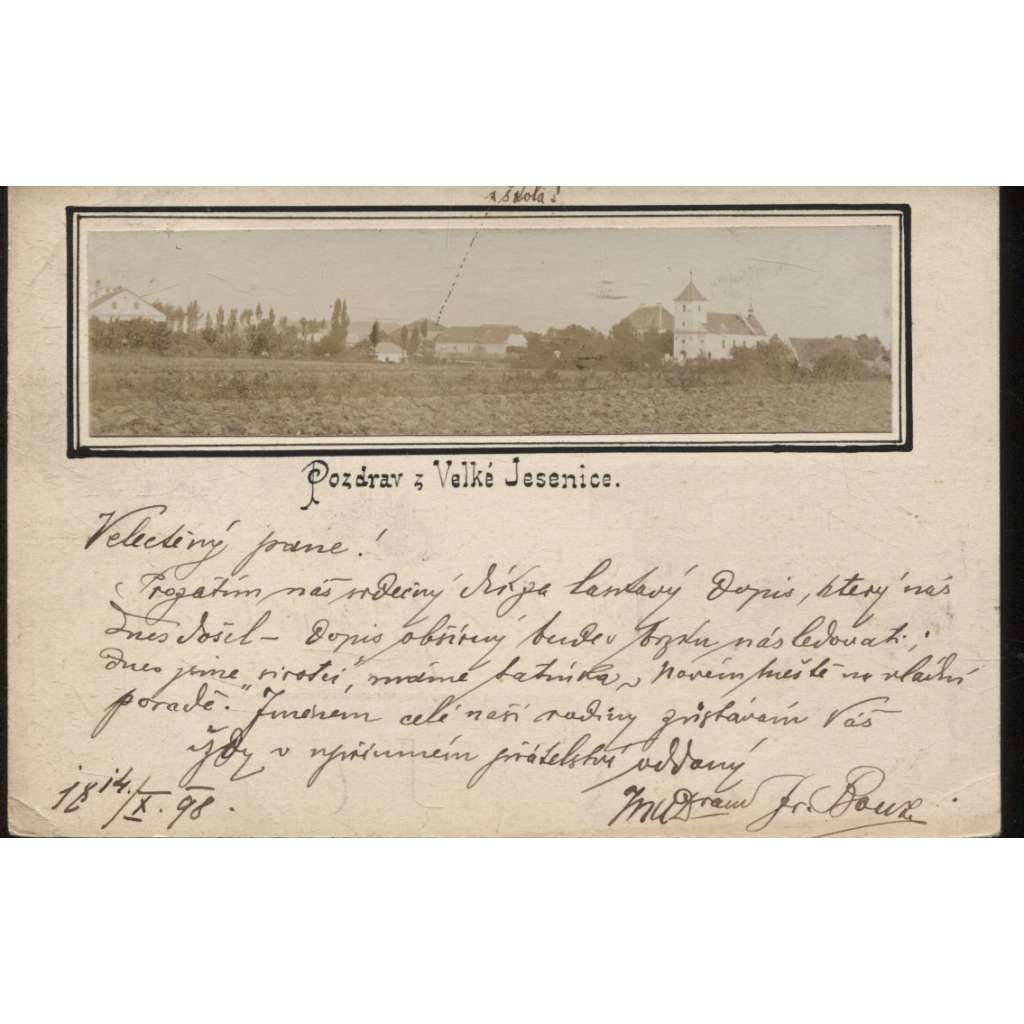 škola!
Pozdrav z Velké Jesenice.
Velectěný pane!
Prozatím náš srdečný dík za laskavý dopis, který nás
dnes došel – Dopis obšírný bude brzku následovati;
dnes jsme "sirotci", máme tatínka v Novém Městě na
poradě. Jménem celé naší rodiny zůstávám Váš
vždy v upřímném přátelství oddaný
18 14./X. 98.
Fr.